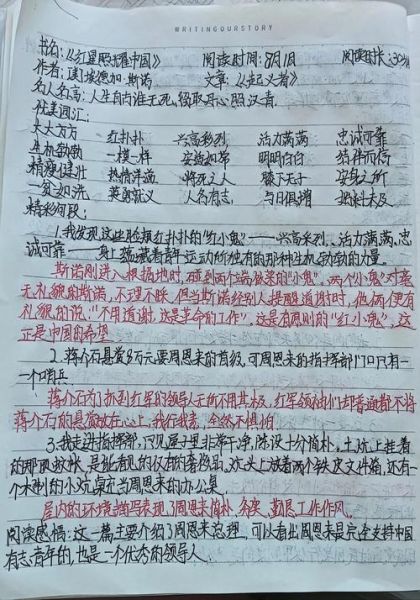 WRITINGOURSTORY
书名:《红星照耀中国》 阅读时间:8月1日 阅读时长:30分
作者:[美]埃德加·斯诺 文章:《起义者》
名人名言:人生自古谁无死,留取丹心照汗青。
优美词汇:
大大方方 红扑扑 兴高采烈 活力满满 忠诚可靠
生机勃勃 一模一样 安然如常 明明白白 结伴而行
精瘦健壮 热情洋溢 将死之人 膝下无子 安身之所
一贫如洗 英勇就义 人各有志 与日俱增
精彩句段:
1.我发现这些脸颊红扑扑的“红小鬼”——兴高采烈、活力满满、忠
诚可靠——身上蕴藏着青年运动所独有的那种生机勃勃的力量。
斯诺刚进入根据地时,碰到两个端饭菜的“小鬼”,两个小鬼对毫
无礼貌的斯诺,不理不睬,但当斯诺经别人提醒道谢时,他俩便有
礼貌的说:“不用道谢,这是革命的工作”。这是有原则的“红小鬼”,这
正是中国的希望
2.蒋介石悬赏8万元要周恩来的首级,可周恩来的指挥部门口只有一
个哨兵
蒋介石为了抓到红军的领导人无所不用其极,红军领袖们却普遍都不将
蒋介石的悬赏放在心上,我行我素,全然不惧怕。
3.我走进指挥部,只见屋子里非常干净,陈设十分简朴,土炕上挂着
的那顶蚊帐,是能看见的仅有的奢侈品,炕头上放着两个铁皮文件箱,还有一
个木制的小炕桌充当周恩来的办公桌。
屋内的环境描写表现了周恩来简朴、务实、勤恳工作作风。
阅读感悟:这一篇主要介绍了周恩来总理,可以看出周恩来是完全支持中国
有志青年的,也是一个优秀的领导人。